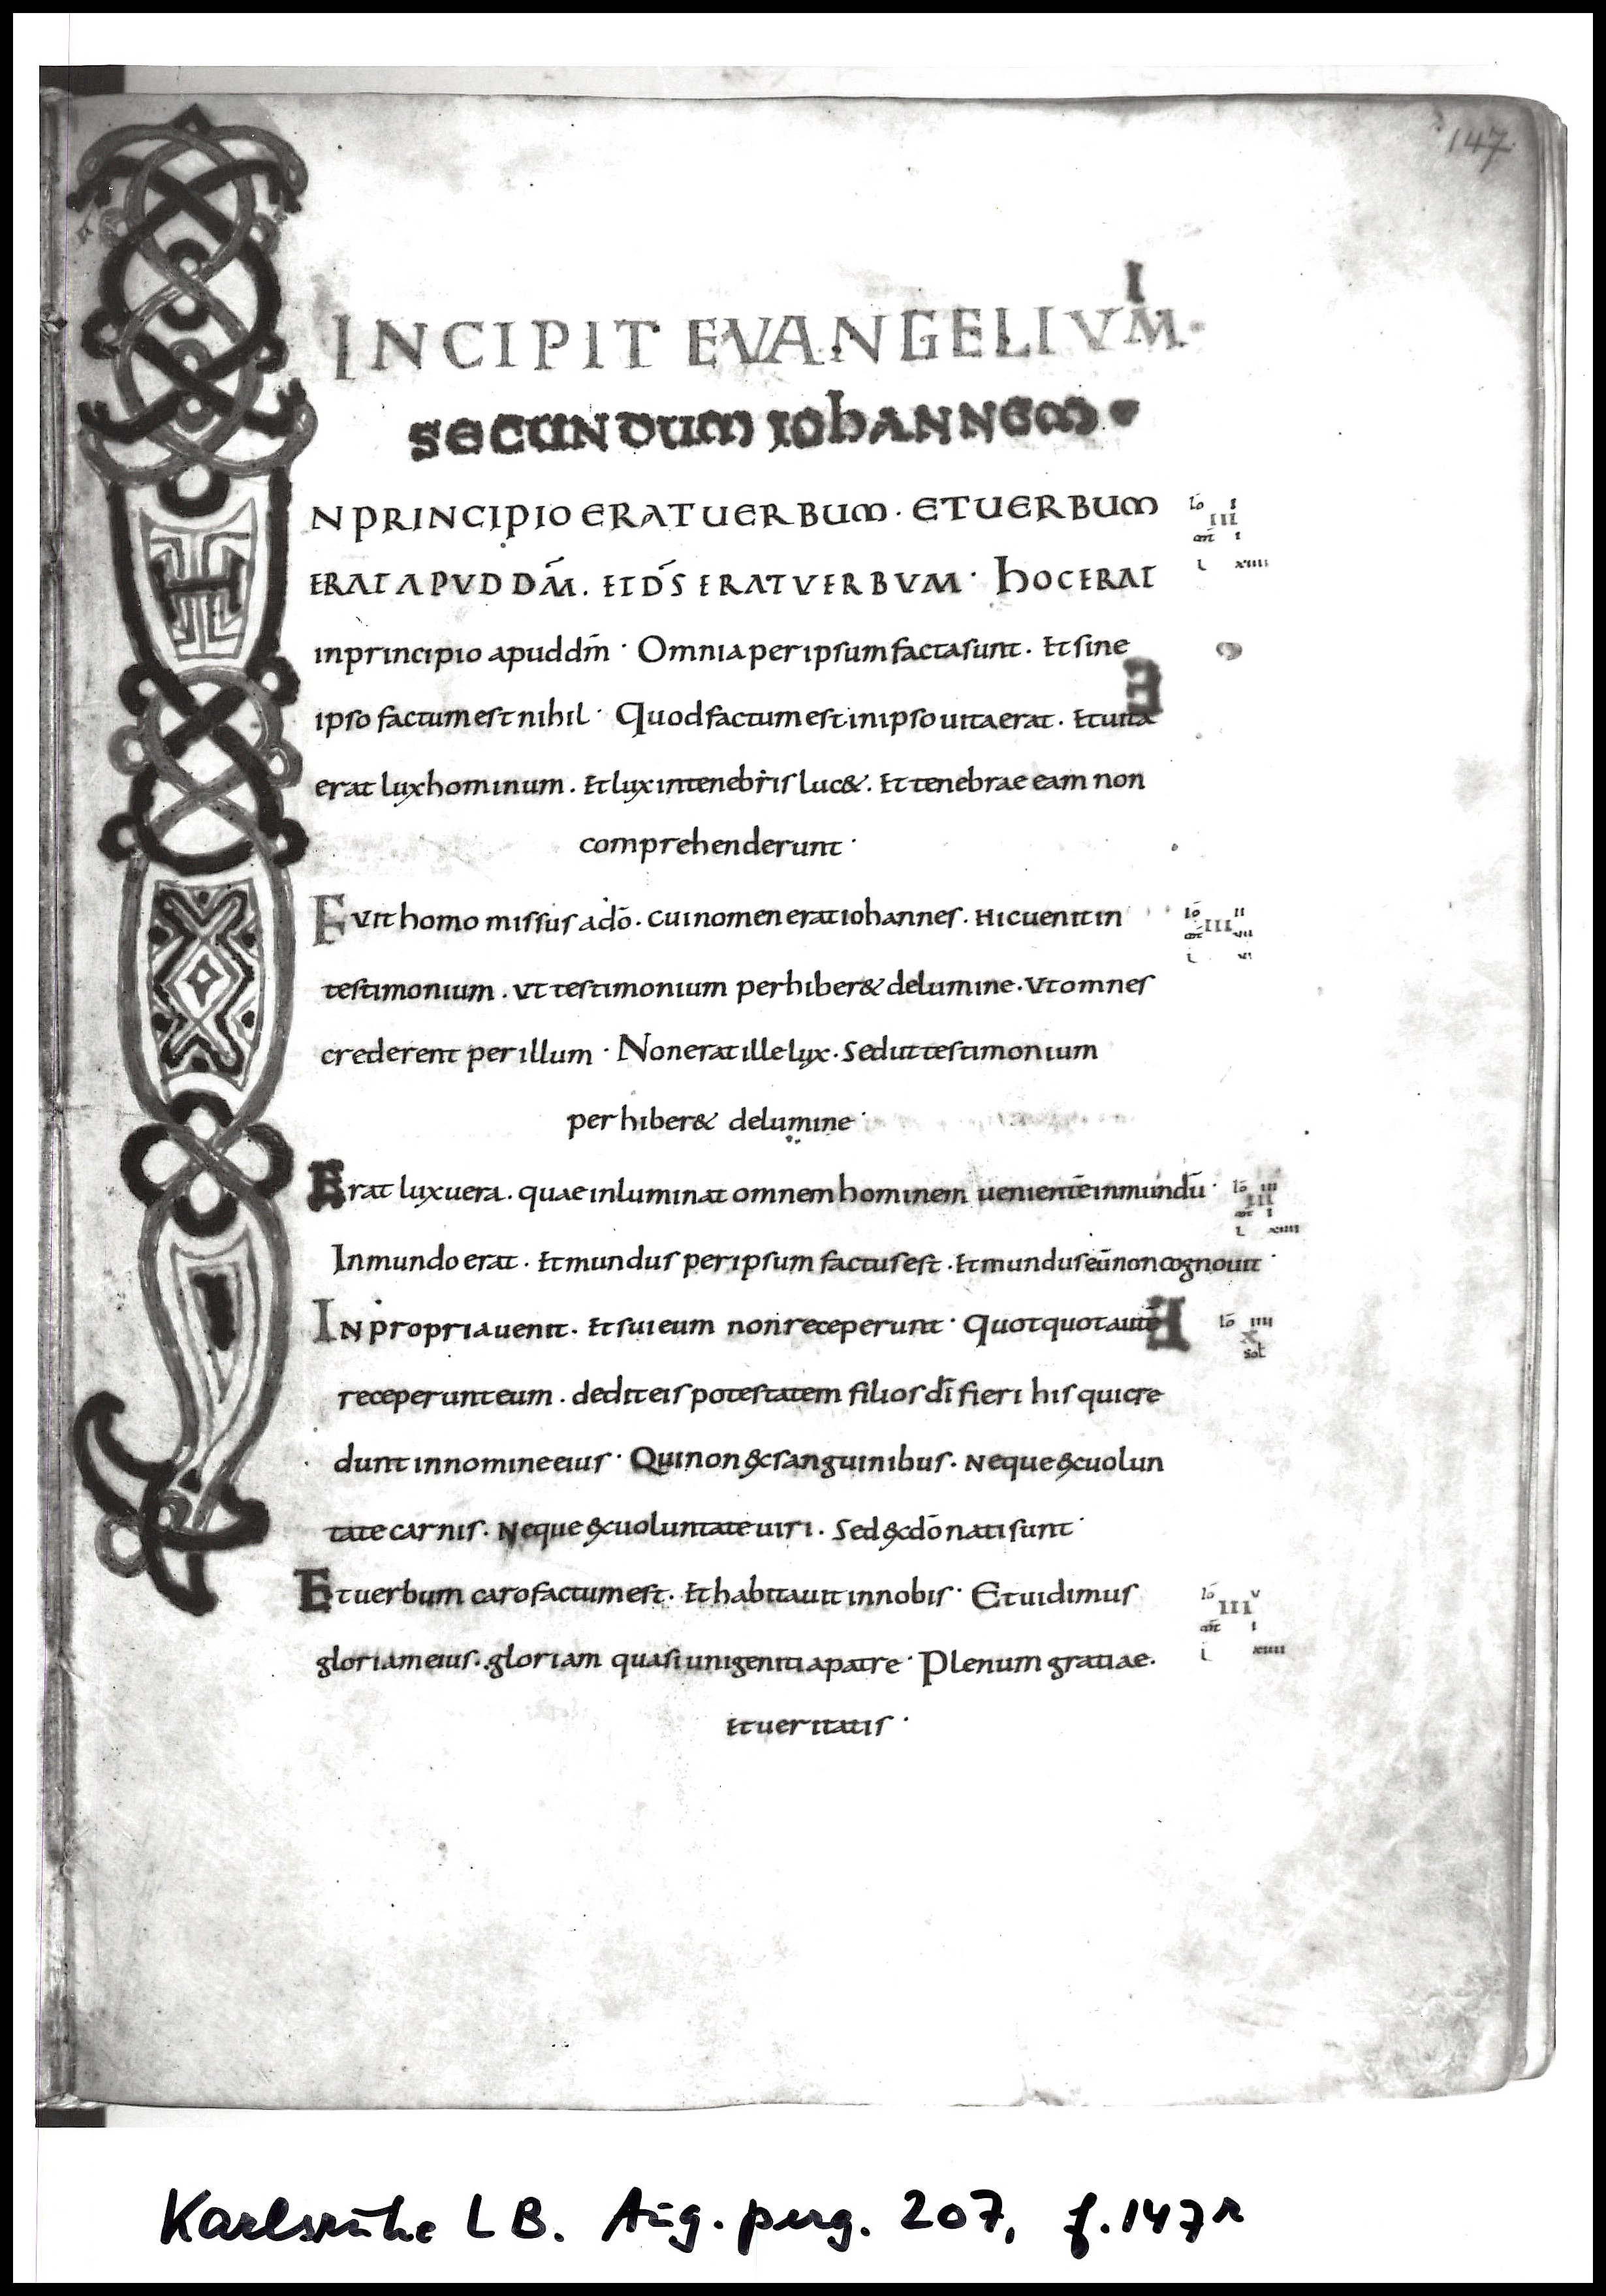 147
INCIPIT EVANGELIVM·
SECUNDUM IOHANNEM·
N PRINCIPIO ERAT UERBUM · ET UERBUM
ERAT APVD DM̄. ET DS̄ ERAT VERBVM · HOC ERAT
in principio apud dm̄ · Omnia per ipsum facta sunt · Et sine
ipso factum est nihil · Quod factum est in ipso uita erat · Et uita
erat lux hominum · Et lux in tenebris luc&. Et tenebrae eam non
comprehenderunt ·
FVit homo missus a dō · cui nomen erat iohannes · Hic uenit in
testimonium · Vt testimonium perhiber& de lumine · Vt omnes
crederent per illum · Non erat ille lux · Sed ut testimonium
perhiber& de lumine ·
Erat lux uera · quae inluminat omnem hominem uenientē in mundū ·
In mundo erat · Et mundus per ipsum factus est · Et mundus eū non cognouit ·
IN propria uenit · Et sui eum non receperunt · Quotquot autē
receperunt eum · dedit eis potestatem filios dī fieri his qui cre
dunt in nomine eius · Qui non ex sanguinibus · Neque ex uolun
tate carnis · Neque ex uoluntate uiri · Sed ex dō nati sunt ·
Et uerbum caro factum est · Et habitauit in nobis · Et uidimus
gloriam eius · gloriam quasi unigeniti a patre · Plenum gratiae ·
Et ueritatis ·
Karlsruhe LB. Aug. perg. 207, f. 147r